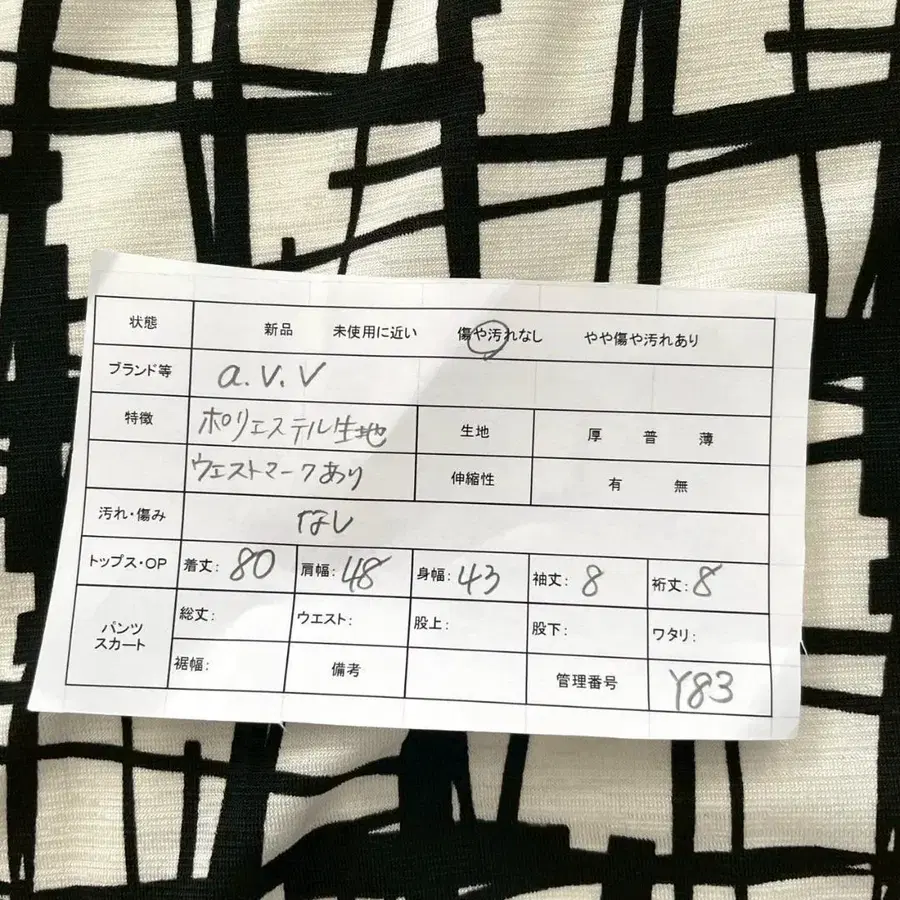 状態 新品 未使用に近い 傷や汚れなし やや傷や汚れあり
ブランド等 a.v.v
特徴 ポリエステル生地 生地 厚 普 薄
ウエストマークあり 伸縮性 有 無
汚れ・傷み なし
トップス・OP 着丈: 80 肩幅: 48 身幅: 43 袖丈: 8 裄丈: 8
パンツ
スカート
総丈: ウエスト: 股上: 股下: ワタリ:
裾幅: 備考 管理番号 Y83